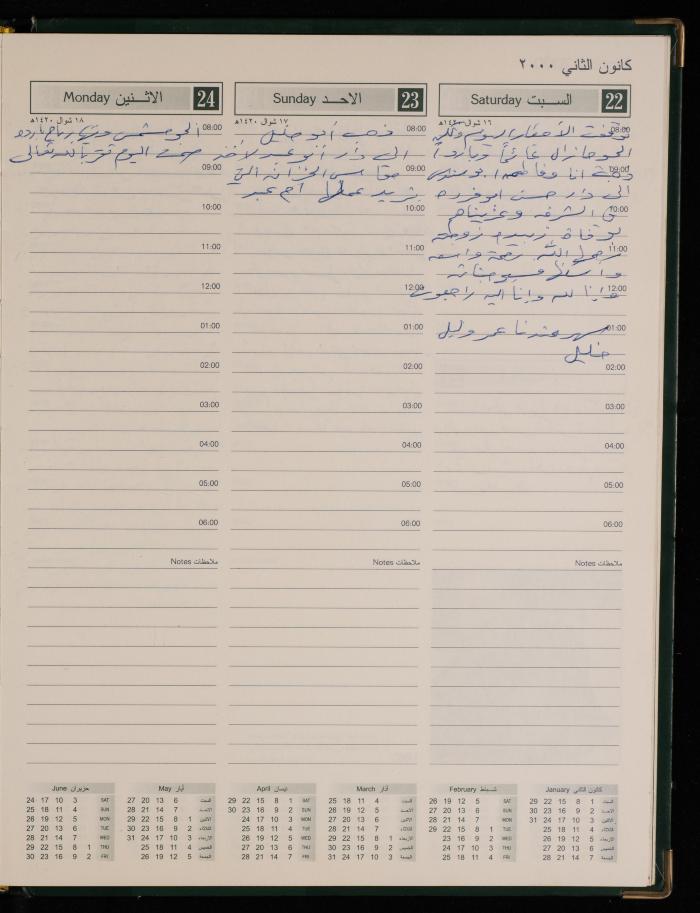 كانون الثاني ٢٠٠٠
22 السبت Saturday
١٦ شوال ١٤٢٠هـ
08:00 توقفت الأمطار اليوم ولكن
الجو مازال غائماً وبارداً
09:00 أنا وفاطمة
الى دار حسن ابو فرده
10:00 الشرفه وعزيناهم
لوفاة زوجة
11:00 رحمها الله رحمة واسعه
واسكنها فسيح جناته
12:00 وإنا لله وإنا إليه راجعون
01:00 سهر عندنا عمر و
خليل
02:00
03:00
04:00
05:00
06:00
ملاحظات Notes
23 الاحـد Sunday
١٧ شوال ١٤٢٠هـ
08:00 ذهب أبو خليل
الى دار أبو عبد لأخذ
09:00 مقاس الخزانه التي
نريد عملها
10:00
11:00
12:00
01:00
02:00
03:00
04:00
05:00
06:00
ملاحظات Notes
24 الاثـنين Monday
١٨ شوال ١٤٢٠هـ
08:00 الجو مشمس بارده
صمت اليوم تقرباً لله تعالى
09:00
10:00
11:00
12:00
01:00
02:00
03:00
04:00
05:00
06:00
ملاحظات Notes
كانون الثاني January
السبت 1 8 15 22 29
الاحـد 2 9 16 23 30
الاثنين 3 10 17 24 31
الثلاثاء 4 11 18 25
الاربعاء 5 12 19 26
الخميس 6 13 20 27
الجمعة 7 14 21 28
شـبـاط February
SAT 5 12 19 26
SUN 6 13 20 27
MON 7 14 21 28
TUE 1 8 15 22 29
WED 2 9 16 23
THU 3 10 17 24
FRI 4 11 18 25
آذار March
السبت 4 11 18 25
الاحـد 5 12 19 26
الاثنين 6 13 20 27
الثلاثاء 7 14 21 28
الاربعاء 1 8 15 22 29
الخميس 2 9 16 23 30
الجمعة 3 10 17 24 31
نيسان April
SAT 1 8 15 22 29
SUN 2 9 16 23 30
MON 3 10 17 24
TUE 4 11 18 25
WED 5 12 19 26
THU 6 13 20 27
FRI 7 14 21 28
أيار May
السبت 6 13 20 27
الاحـد 7 14 21 28
الاثنين 1 8 15 22 29
الثلاثاء 2 9 16 23 30
الاربعاء 3 10 17 24 31
الخميس 4 11 18 25
الجمعة 5 12 19 26
حزيران June
SAT 3 10 17 24
SUN 4 11 18 25
MON 5 12 19 26
TUE 6 13 20 27
WED 7 14 21 28
THU 1 8 15 22 29
FRI 2 9 16 23 30